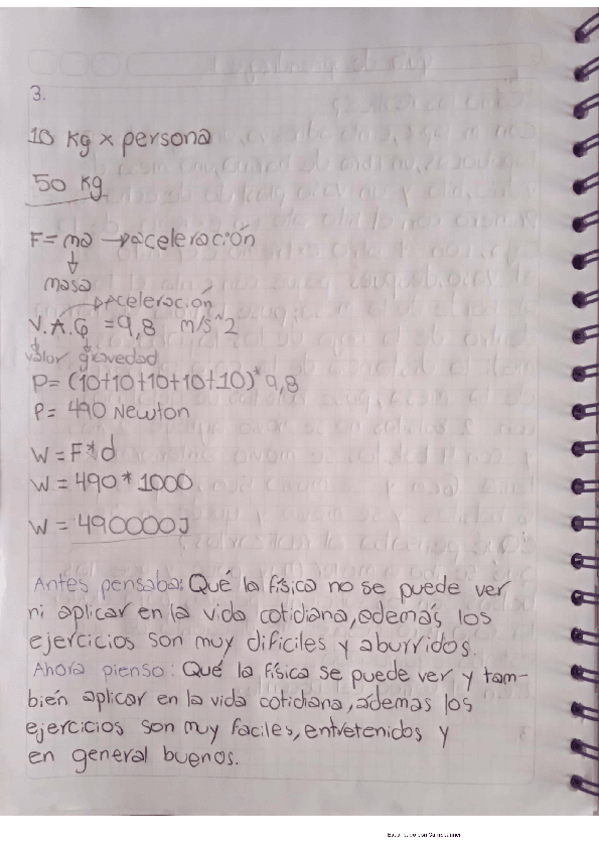 3.
10 kg x persona
50 kg
F= ma → aceleración
masa
aceleración
V.A.G = 9,8 m/s^2
valor gravedad
P= (10+10+10+10+10)*9,8
P= 490 Newton
W = F*d
W = 490*1000
W = 490000J
Antes pensaba: Qué la física no se puede ver
ni aplicar en la vida cotidiana, además los
ejercicios son muy dificiles y aburridos.
Ahora pienso: Qué la física se puede ver y tam-
bién aplicar en la vida cotidiana, ádemas los
ejercicios son muy faciles, entretenidos y
en general buenos.